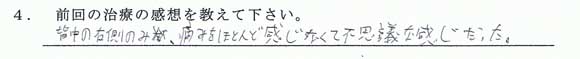 4． 前回の治療の感想を教えて下さい。
背中の右側のみ、痛みをほとんど感じなくて不思議な感じだった。